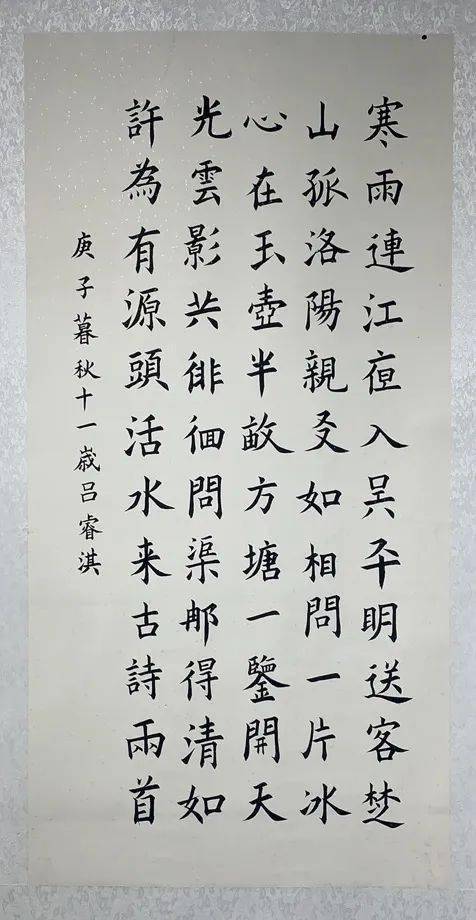 寒雨連江夜入吴平明送客楚
山孤洛陽親友如相問一片冰
心在玉壺半畝方塘一鑒開天
光雲影共徘徊問渠那得清如
許為有源頭活水来古詩兩首
庚子暮秋十一歲吕睿淇